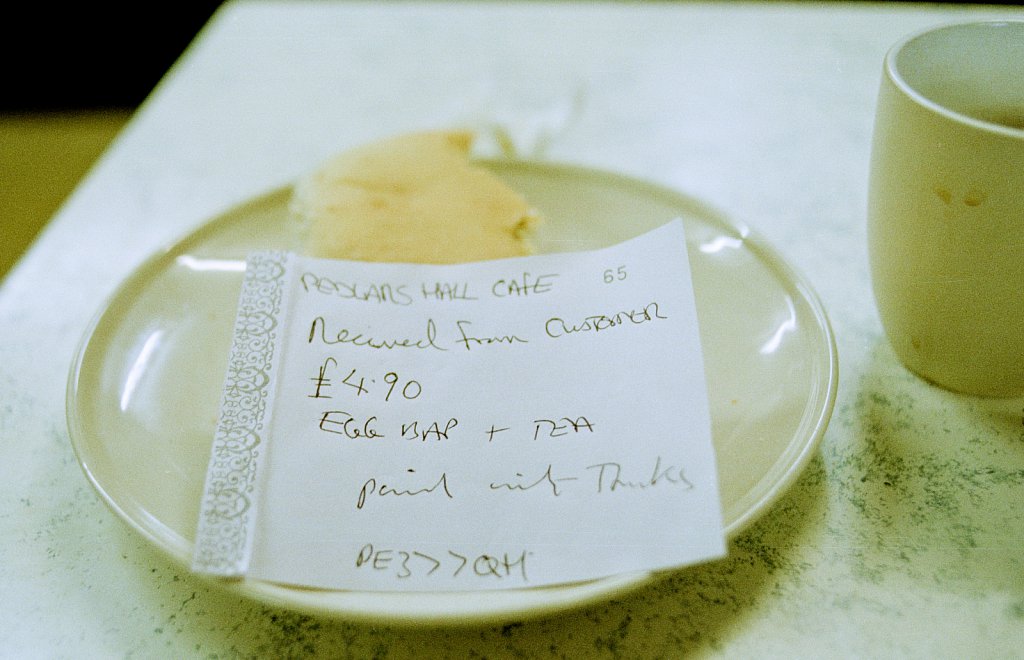 PEDLARS HALL CAFE 65
Received from CUSTOMER
£4.90
EGG BAP + TEA
paid with Thanks
PE377QH